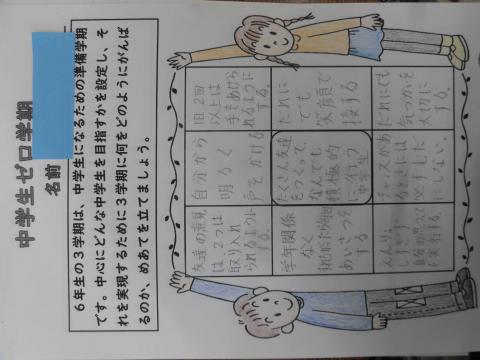 中学生ゼロ学期
名前
６年生の３学期は、中学生になるための準備学期
です。中心にどんな中学生を目指すかを設定し、そ
れを実現するために３学期に何をどのようにがんば
るのか、めあてを立てましょう。
友達の意見
は、2つは
取り入れ
られるように
する。
自分から
明るく
声をかける
1日2回
以上は
手をあげら
れるように
する。
学年関係
なく
あいさつを
する。
たくさん友達
をつくって、
なんでも
積極的
な中学生
だれに
でも
笑顔で
接する
チャンスがあ
るときには
にしない。
だれにでも
気づかいを
大切に
する。